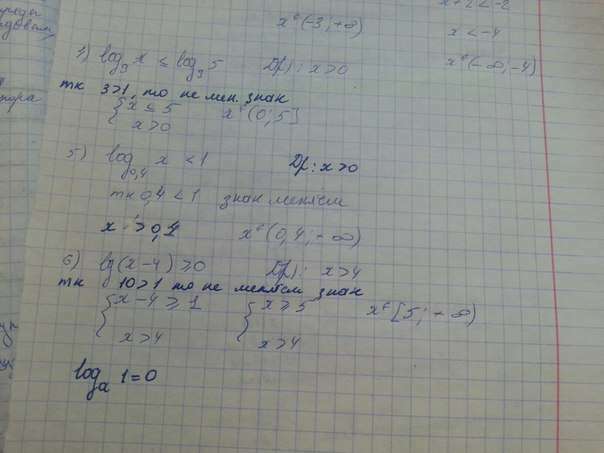 x ∈ (-3; +∞)
x + 2 < -2
x < -4
x ∈ (-∞; -4)
1) log₃ x ≤ log₃ 5 D(y): x>0
тк 3>1, то не мен. знак
{ x ≤ 5 x ∈ (0; 5]
x>0
5) log₀,₄ x < 1 D(y): x>0
тк 0,4 < 1 знак меняем
x > 0,4 x ∈ (0,4; +∞)
6) lg(x-4) ≥ 0 D(y): x>4
тк 10>1 то не меняем знак
{ x-4 ≥ 1 { x ≥ 5 x ∈ [5; +∞)
x>4 x>4
logₐ 1=0